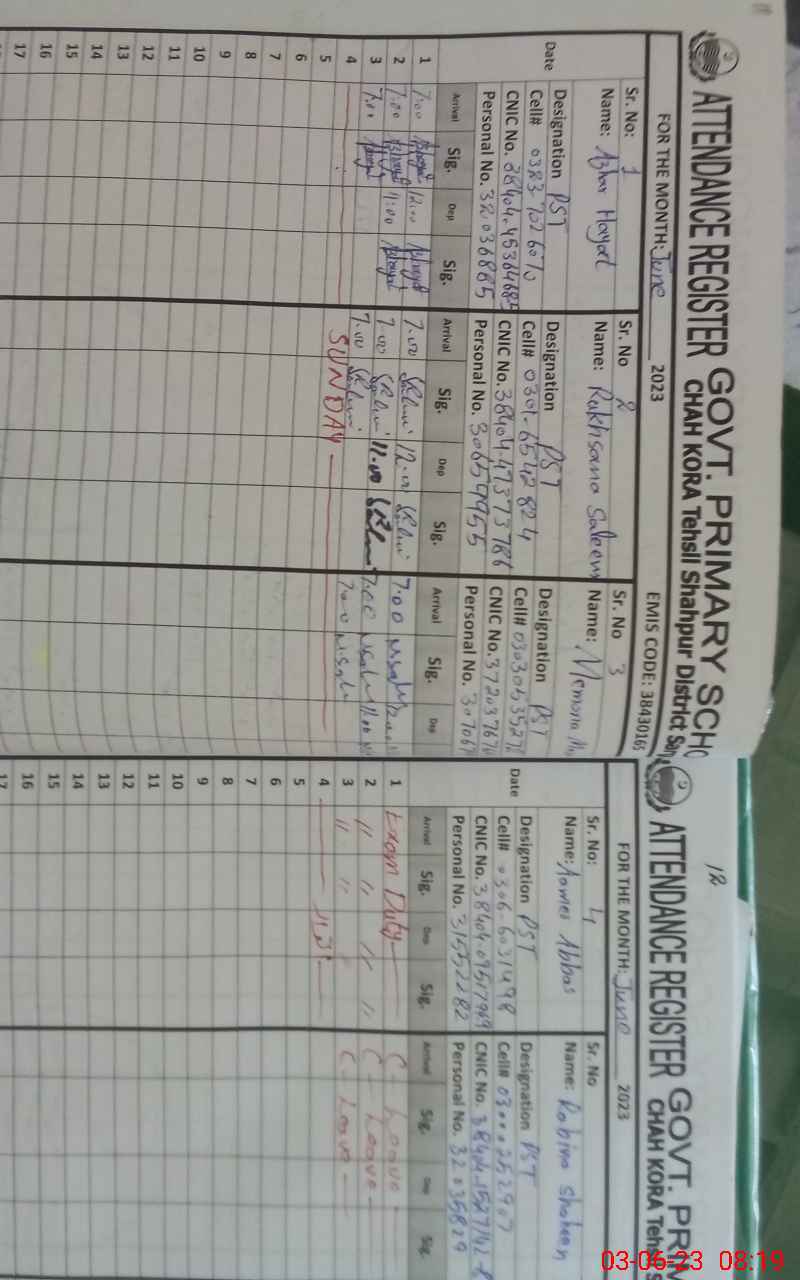 ATTENDANCE REGISTER GOVT. PRIMARY SCHO
CHAH KORA Tehsil Shahpur District Sar
FOR THE MONTH: June 2023 EMIS CODE: 38430165
Sr. No: 1
Name: Azhar Hayat
Designation PST
Cell# 0383-7026070
CNIC No. 38404-4536468
Personal No. 32036885
Date
Arrival Sig. Dep Sig.
1 7:00 12:00
2 7:00 11:00
3 7:00
4
5
6
7
8
9
10
11
12
13
14
15
16
17
Sr. No 2
Name: Rukhsana Saleem
Designation PST
Cell# 0301-6542824
CNIC No. 38404-47373786
Personal No. 30659955
Arrival Sig. Dep Sig.
7.00 12.00
7.00 11.00
7.00
SUNDAY
Sr. No 3
Name: Memona
Designation PST
Cell# 0303053527
CNIC No. 372037676
Personal No. 307067
Arrival Sig. Dep
7.00
7.00 11.00
7.00
12
ATTENDANCE REGISTER GOVT. PRIM
CHAH KORA Tehs
FOR THE MONTH: June 2023
Sr. No: 4
Name: Aamer Abbas
Designation PST
Cell# 0306-6031498
CNIC No. 38404-09517949
Personal No. 31552282
Date
Arrival Sig. Dep Sig.
1 Exam Duty
2 〃 〃 〃 〃
3 〃 〃
4
5
6
7
8
9
10
11
12
13
14
15
16
17
Sr. No
Name: Robina Shaheen
Designation PST
Cell# 0300
CNIC No. 38404
Personal No. 32035829
Arrival Sig. Dep Sig.
C - Leave
C - Leave
C - Leave
03-06-23 08:19